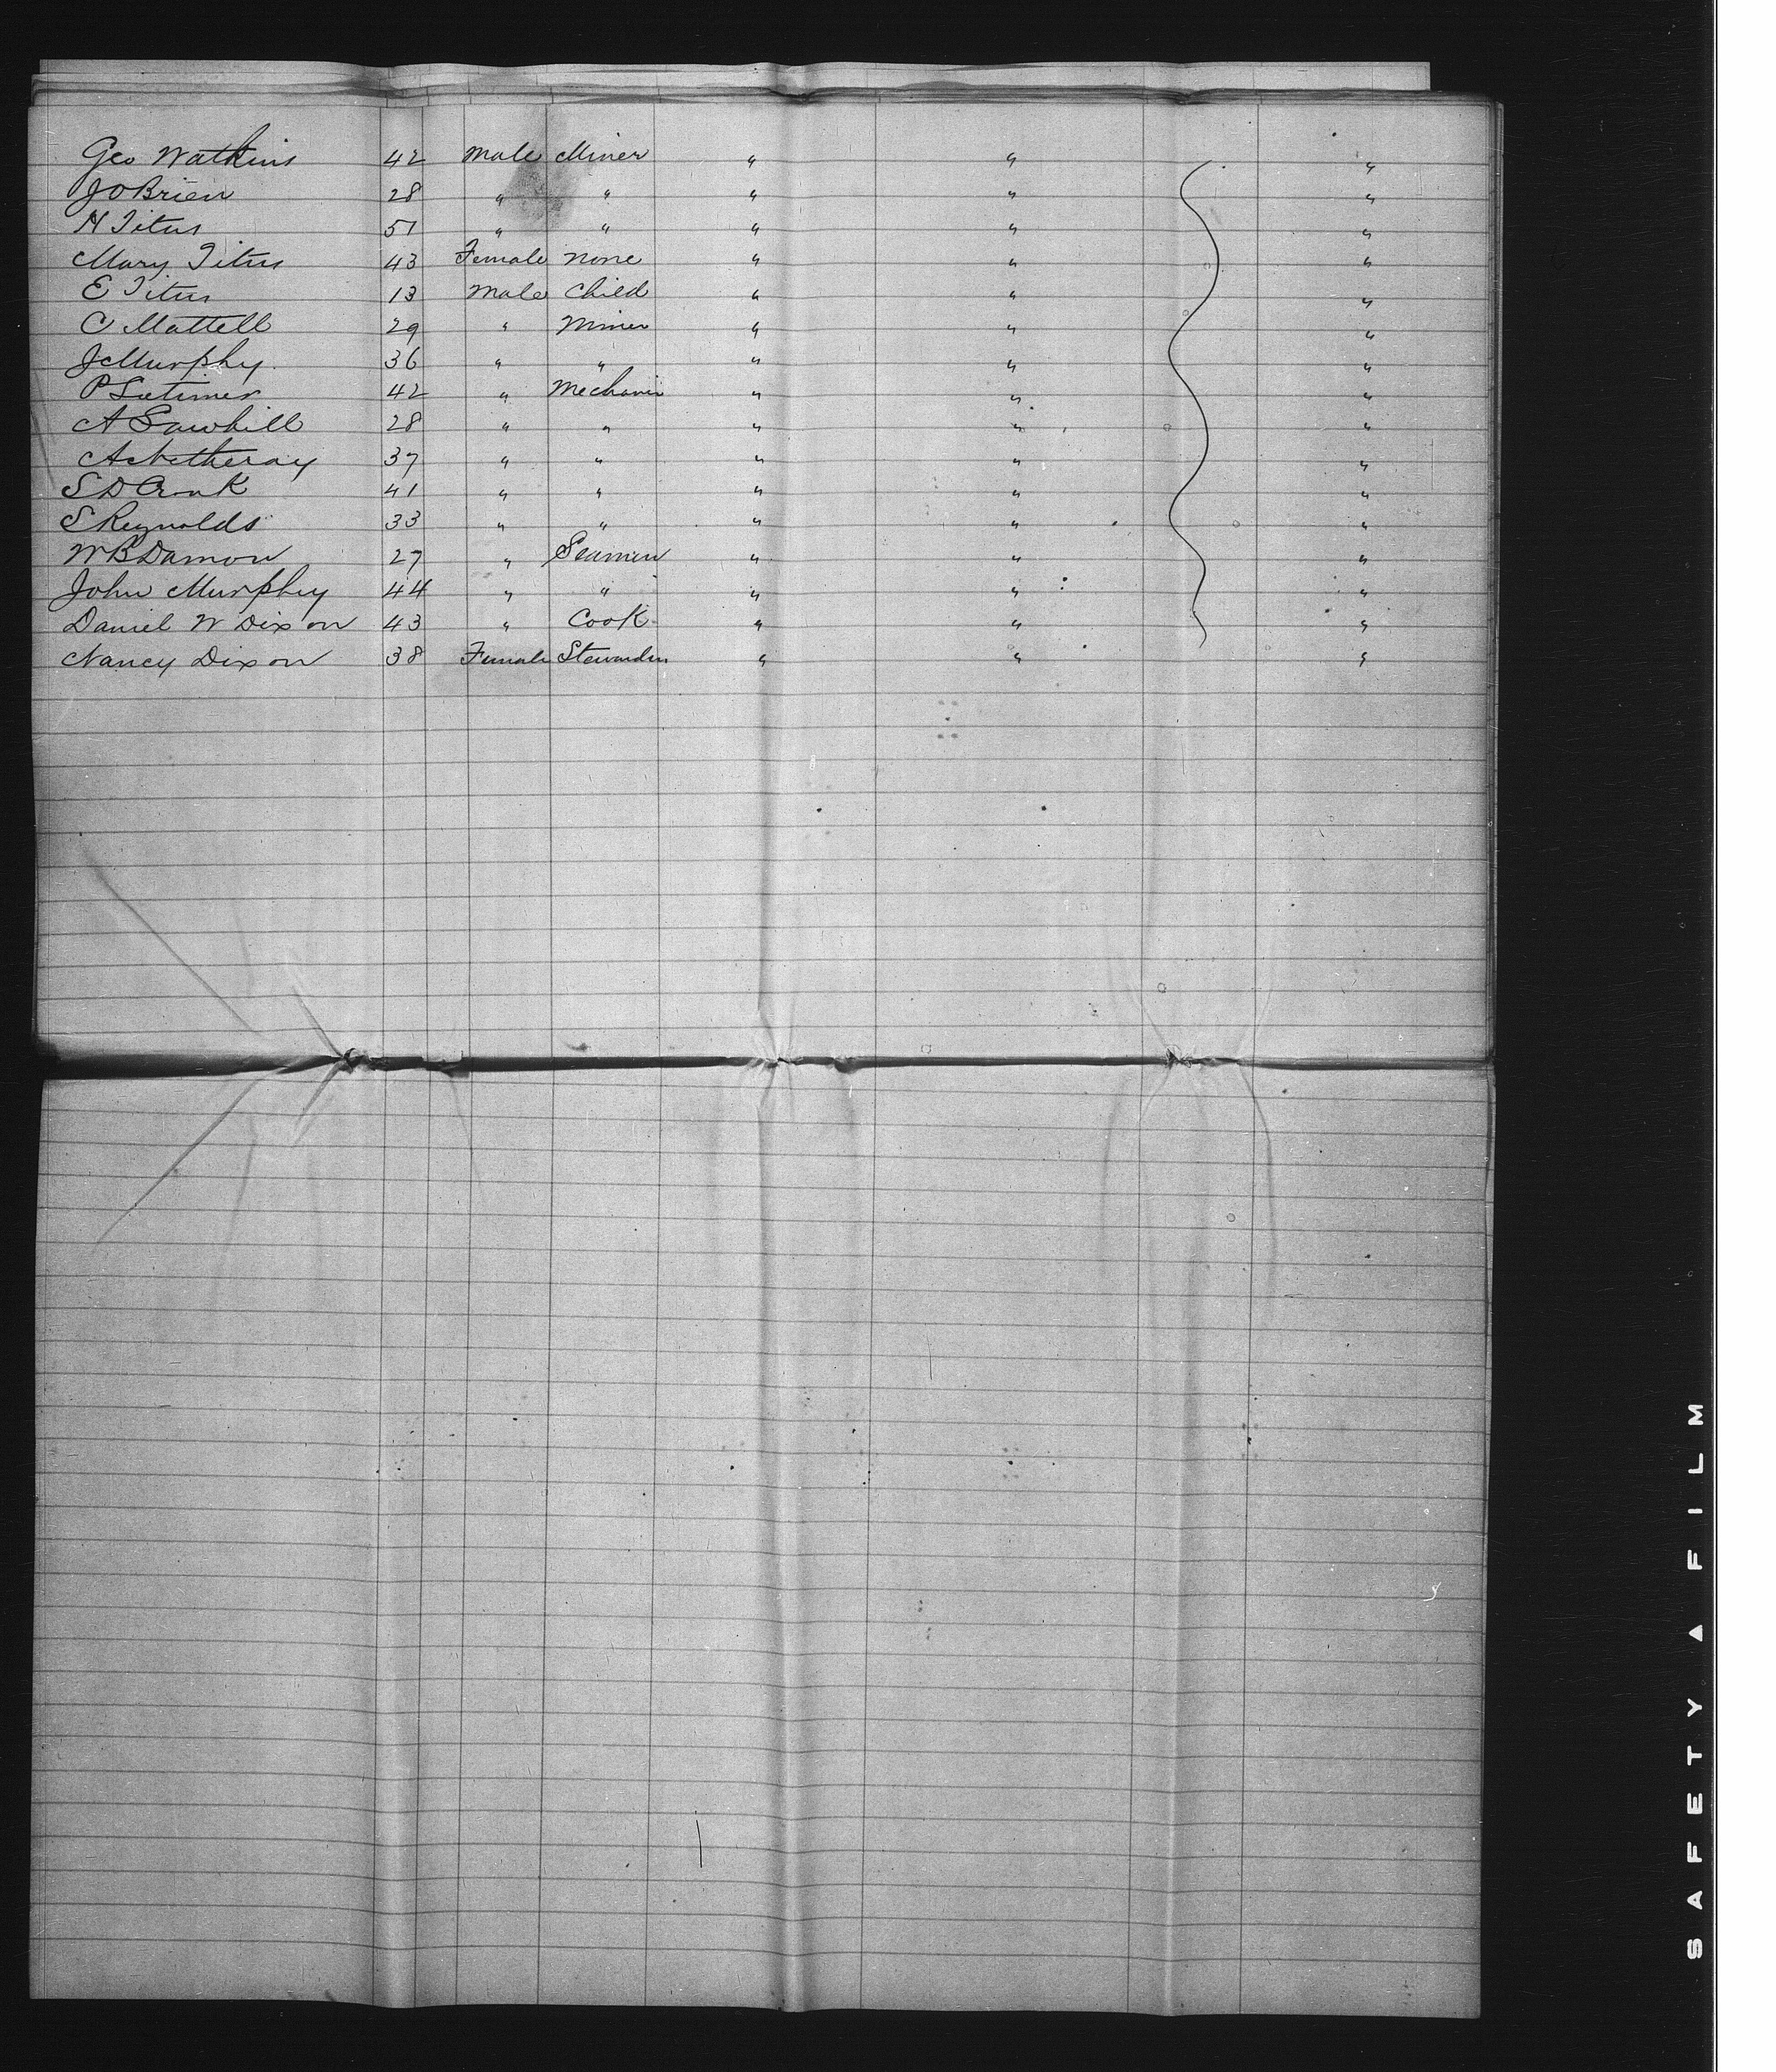 Geo Watkins 42 Male Miner " " "
J O Brien 28 " " " " "
H Titus 51 " " " " "
Mary Titus 43 Female None " " "
E Titus 13 Male Child " " "
C Mattell 29 " Miner " " "
J Murphy. 36 " " " " "
P Latimer 42 " Mechanic " " "
A Sawhill 28 " " " " "
A 37 " " " " "
S D 41 " " " " "
S Reynolds 33 " " " " "
W B Damon 27 " Seamen " " "
John Murphy 44 " " " " "
Daniel W Dixon 43 " Cook " " "
Nancy Dixon 38 Female " " "
SAFETY ▲ FILM